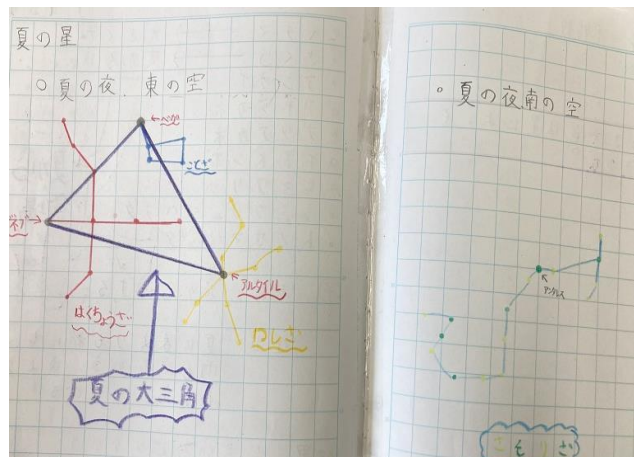 夏の星
○夏の夜、東の空
←ベガ
ことざ
デネブ→
アルタイル
はくちょうざ
わしざ
夏の大三角
○夏の夜南の空
アンタレス
さそりざ